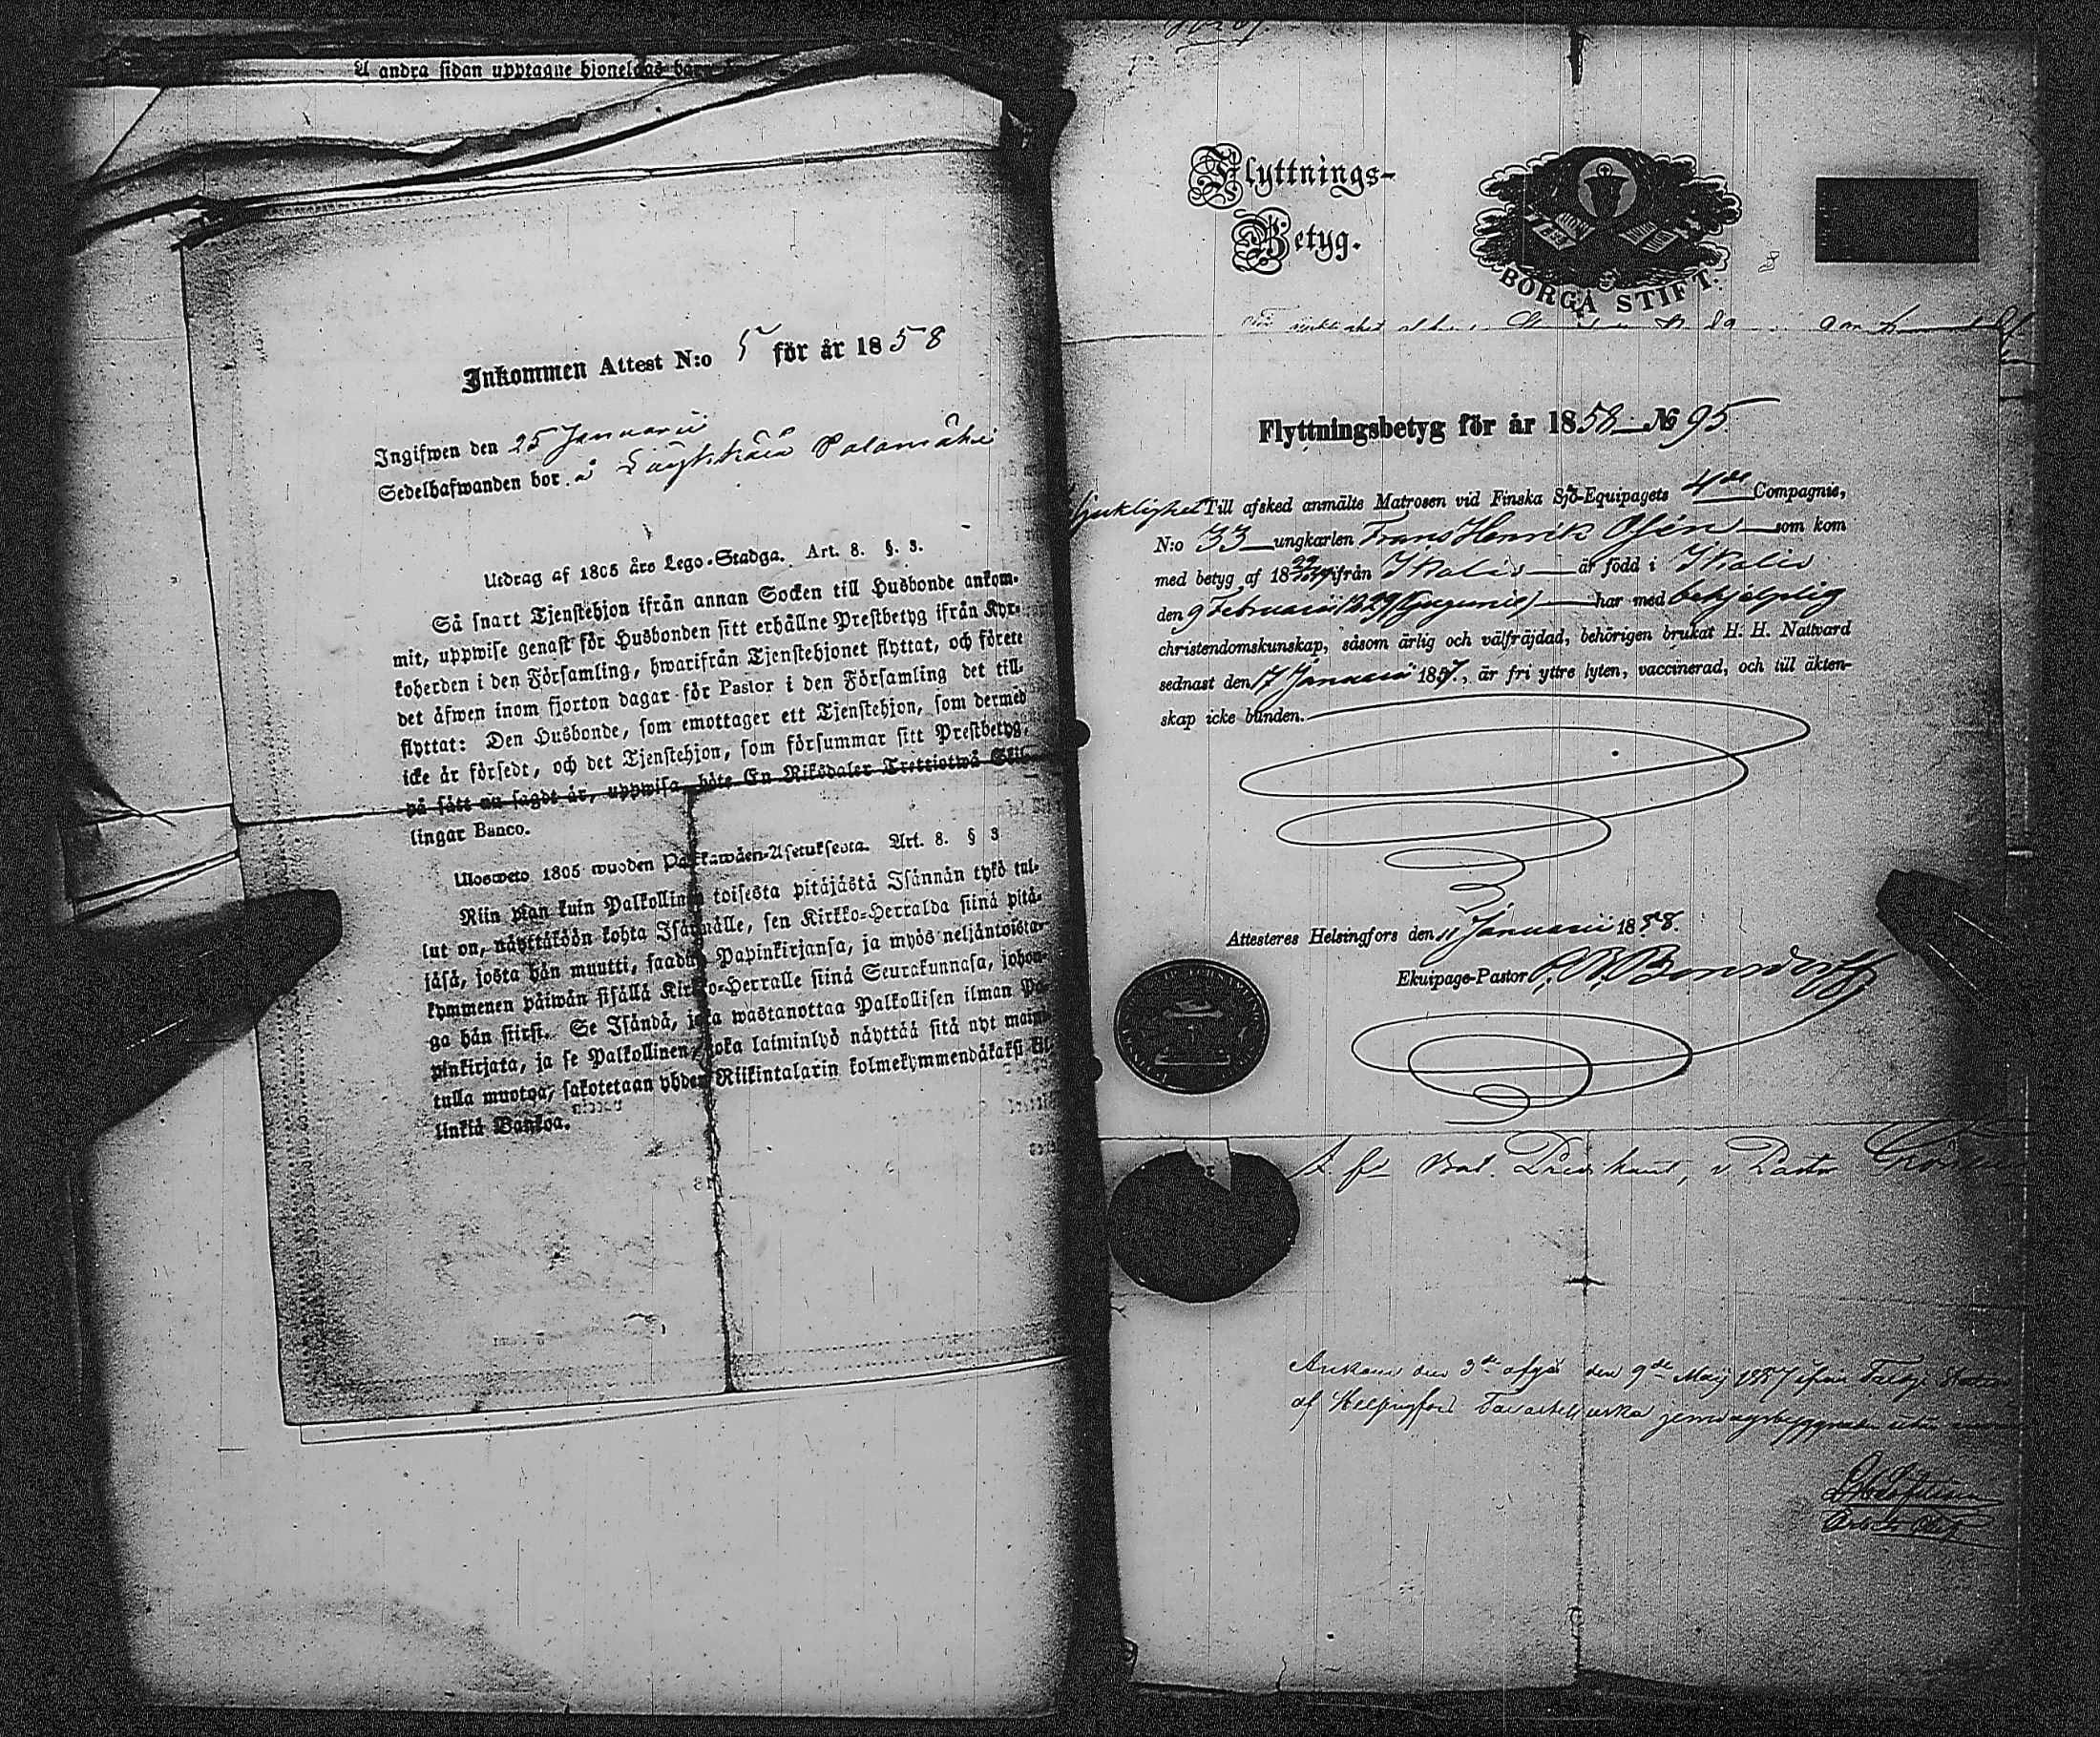 A andra sidan upptagne hjonelags barn
Inkommen Attest N:o 5 för år 1858
Ingifwen den 25 Januarii
Sedelhafwanden bor å Palomäki
Utdrag af 1805 års Lego-Stadga. Art. 8. §. 3.
Så snart Tjenstehjon ifrån annan Socken till Husbonde ankom-
mit, uppwise genast för Husbonden sitt erhållne Prestbetyg ifrån Kyr-
koherden i den Församling, hwarifrån Tjenstehjonet flyttat, och förete
det äfwen inom fjorton dagar för Pastor i den Församling det till-
flyttat: Den Husbonde, som emottager ett Tjenstehjon, som dermed
icke är försedt, och det Tjenstehjon, som försummar sitt Prestbetyg,
på sätt nu sagdt är, uppwisa, böte En Riksdaler Trettiotwå Skil-
lingar Banco.
Ulosweto 1805 wuoden Palkawäen-Asetuksesta. Art. 8. § 3
Niin pian kuin Palkollinen toisesta pitäjästä Isännän tykö tul-
lut on, näyttäköön kohta Isännälle, sen Kirkko-Herralda siinä pitä-
jäsä, josta hän muutti, saadun Papinkirjansa, ja myös neljäntoista-
kymmenen päiwän sisällä Kirkko-Herralle siinä Seurakunnasa, johon-
ga hän siirst. Se Isändä, joka wastanottaa Palkollisen ilman Pa-
pinkirjata, ja se Palkollinen, joka laiminlyö näyttää sitä nyt maini-
tulla muotoa, sakotetaan yhden Riikintalarin kolmekymmendäkaksi kil-
linkiä Bankoa.
Flyttnings-
Betyg.
BORGÅ STIFT.
Flyttningsbetyg för år 1858 № 95
Sjuklighet Till afsked anmälte Matrosen vid Finska Sjö-Equipagets 4de Compagnie,
N:o 33 ungkarlen Frans Henrik Osén som kom
med betyg af 18 ifrån Ikalis är född i Ikalis
den 9 Februarii 1829 har med behjelplig
christendomskunskap, såsom ärlig och välfräjdad, behörigen brukat H. H. Nattvard
sednast den 17 Januarii 1857, är fri yttre lyten, vaccinerad, och till äkten-
skap icke bunden.
Attesteres Helsingfors den 11 Januarii 1858.
Ekuipage-Pastor Bonsdorff
Pastor
Ankom den 3de afgå den 9de Maij 1857 ifrån
af Helsingfors Tavastehusska jernvägsbyggnaden utan